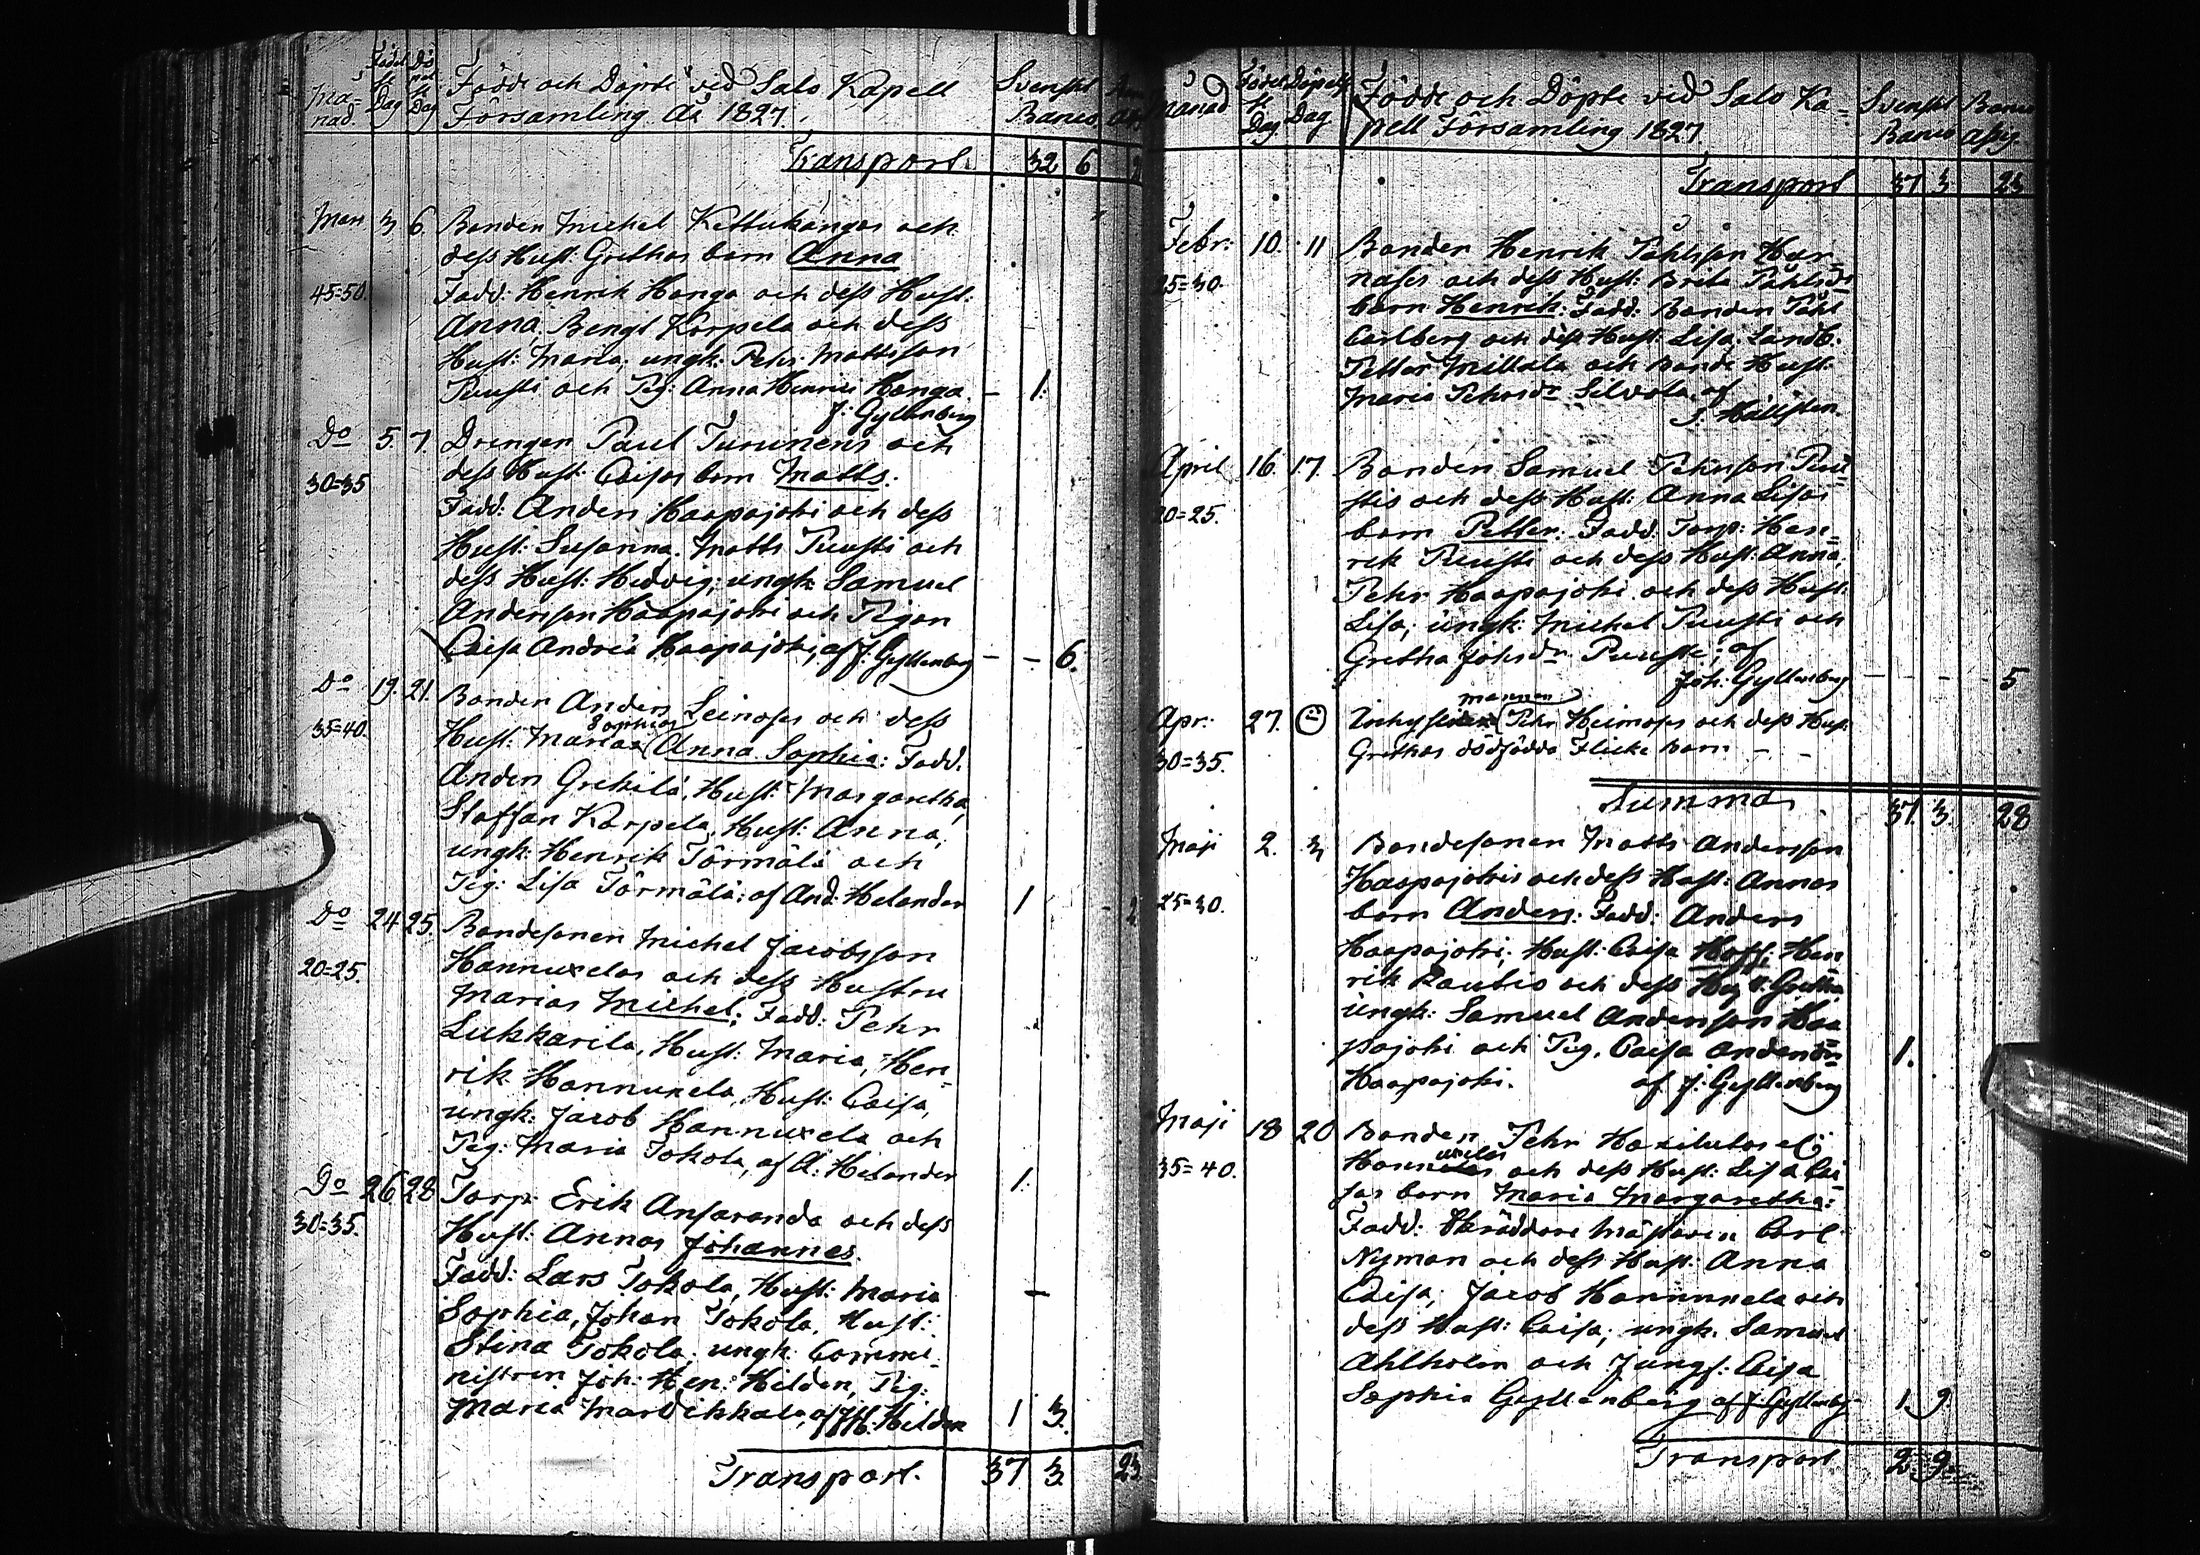 Må-
nad.
Födel
se
Dag
Dö
pel
se
Dag
Födde och Döpte vid Salo Kapell
Församling År 1827.
Svenskt
Banco
Transport. 32 6
Mars 3 6 Bonden Michel Kettukangas och
dess Hust: Grethas barn Anna
45=50. Fadd: Henrik Hanga och dess Hust:
Anna, Bengt Korpela och dess
Hust: Maria; ungk: Pehr Mattsson
Puusti och Pig: Anna Henrici Hanga. – 1.
J: Gyllenberg
Do 5. 7. Drengen Paul Turunens och
30=35 dess Hust: Caisas barn Matts.
Fadd: Anders Haapajoki och dess
Hust: Susanna. Matts Puusti och
dess Hust: Hedvig; ungk: Samuel
Andersson Haapajoki och Pigan
Caisa Andreæ Haapajoki, af J: Gyllenberg – – 6.
Do 19. 21. Bonden Anders Leinoses och dess
35=40. Hust: Marias Sophias Anna Sophia: Fadd.
Anders Grekilä, Hust: Margaretha,
Staffan Korpela, Hust: Anna,
ungk: Henrik Törmälä och
Pig: Lisa Törmälä: af And: Helander 1
Do 24 25. Bondesonen Michel Jacobsson
20=25. Hannuxelas och dess Hustru
Marias Michel; Fadd: Pehr
Lukkarila, Hust: Maria, Hen-
rik Hannuxela, Hust: Caisa,
ungk: Jacob Hannuxela och
Pig: Maria Tokola, af A: Helander 1.
Do 26 28 Torp: Erik Ansaranda och dess
30=35. Hust: Annas Johannes.
Fadd: Lars Tokola, Hust: Maria
Sophia, Johan Tokola, Hust:
Stina Tokola; ungk: Commi-
nistren Joh: Hen: Helden, Pig:
Maria Mardikkala, af JH. Helden 1 3.
Transport. 37 3. 23.
Månad
Födelse
Dag
Döpelse
Dag
Födde och Döpte vid Salo Ka-
pell Församling 1827.
Svenskt
Banco
Banco
Assig.
Transport 37 3. 23
Febr: 10. 11 Bonden Henrik Påhlsson Hur-
nases och dess Hust: Breta Påhlsdr
25=30. barn Henrik: Fadd: Bonden Påhl
Carlberg och dess Hust: Lisa, Landb.
Petter Millula och Bonde Hust:
Maria Pehrsdr Silvola, af
J. Hällsten.
April 16. 17. Bonden Samuel Pehrsson Puu-
stis och dess Hust: Anna Lisas
20=25. barn Petter. Fadd. Torp: Hen-
rik Puusti och dess Hust: Anna,
Pehr Haapajoki och dess Hust:
Lisa; ungk: Michel Puusti och
Gretha Johsdr Puusti; af
Joh: Gyllenberg – – – 5
mannen
Apr: 27. Pehr Heimoses och dess Hust:
30=35. Grethas dödfödda Flicke barn – –
Summa 37. 3. 28
Maji 2. 3 Bondesonen Matts Andersson
Haapajokis och dess Hust: Annas
25=30. barn Anders: Fadd: Anders
Haapajoki, Hust: Caisa Hoff; Hen-
rik Rautio och dess Hust: Gretha
ungk: Samuel Andersson Haa-
pajoki och Pig. Caisa Andersdr 1.
Haapajoki. af J: Gyllenberg
Maji 18 20 Bonden Pehr
35=40. och dess Hust: Lisa Cai-
sas barn Maria Margaretha:
Fadd: Skräddare Mästaren Carl
Nyman och dess Hust: Anna
Caisa; Jacob Hannuxela och
dess Hust: Caisa; ungk. Samuel
Ahlholm och Jungf: Caisa
Sophia Gyllenberg af J: Gyllenberg 1. 9.
Transport 2. 9.